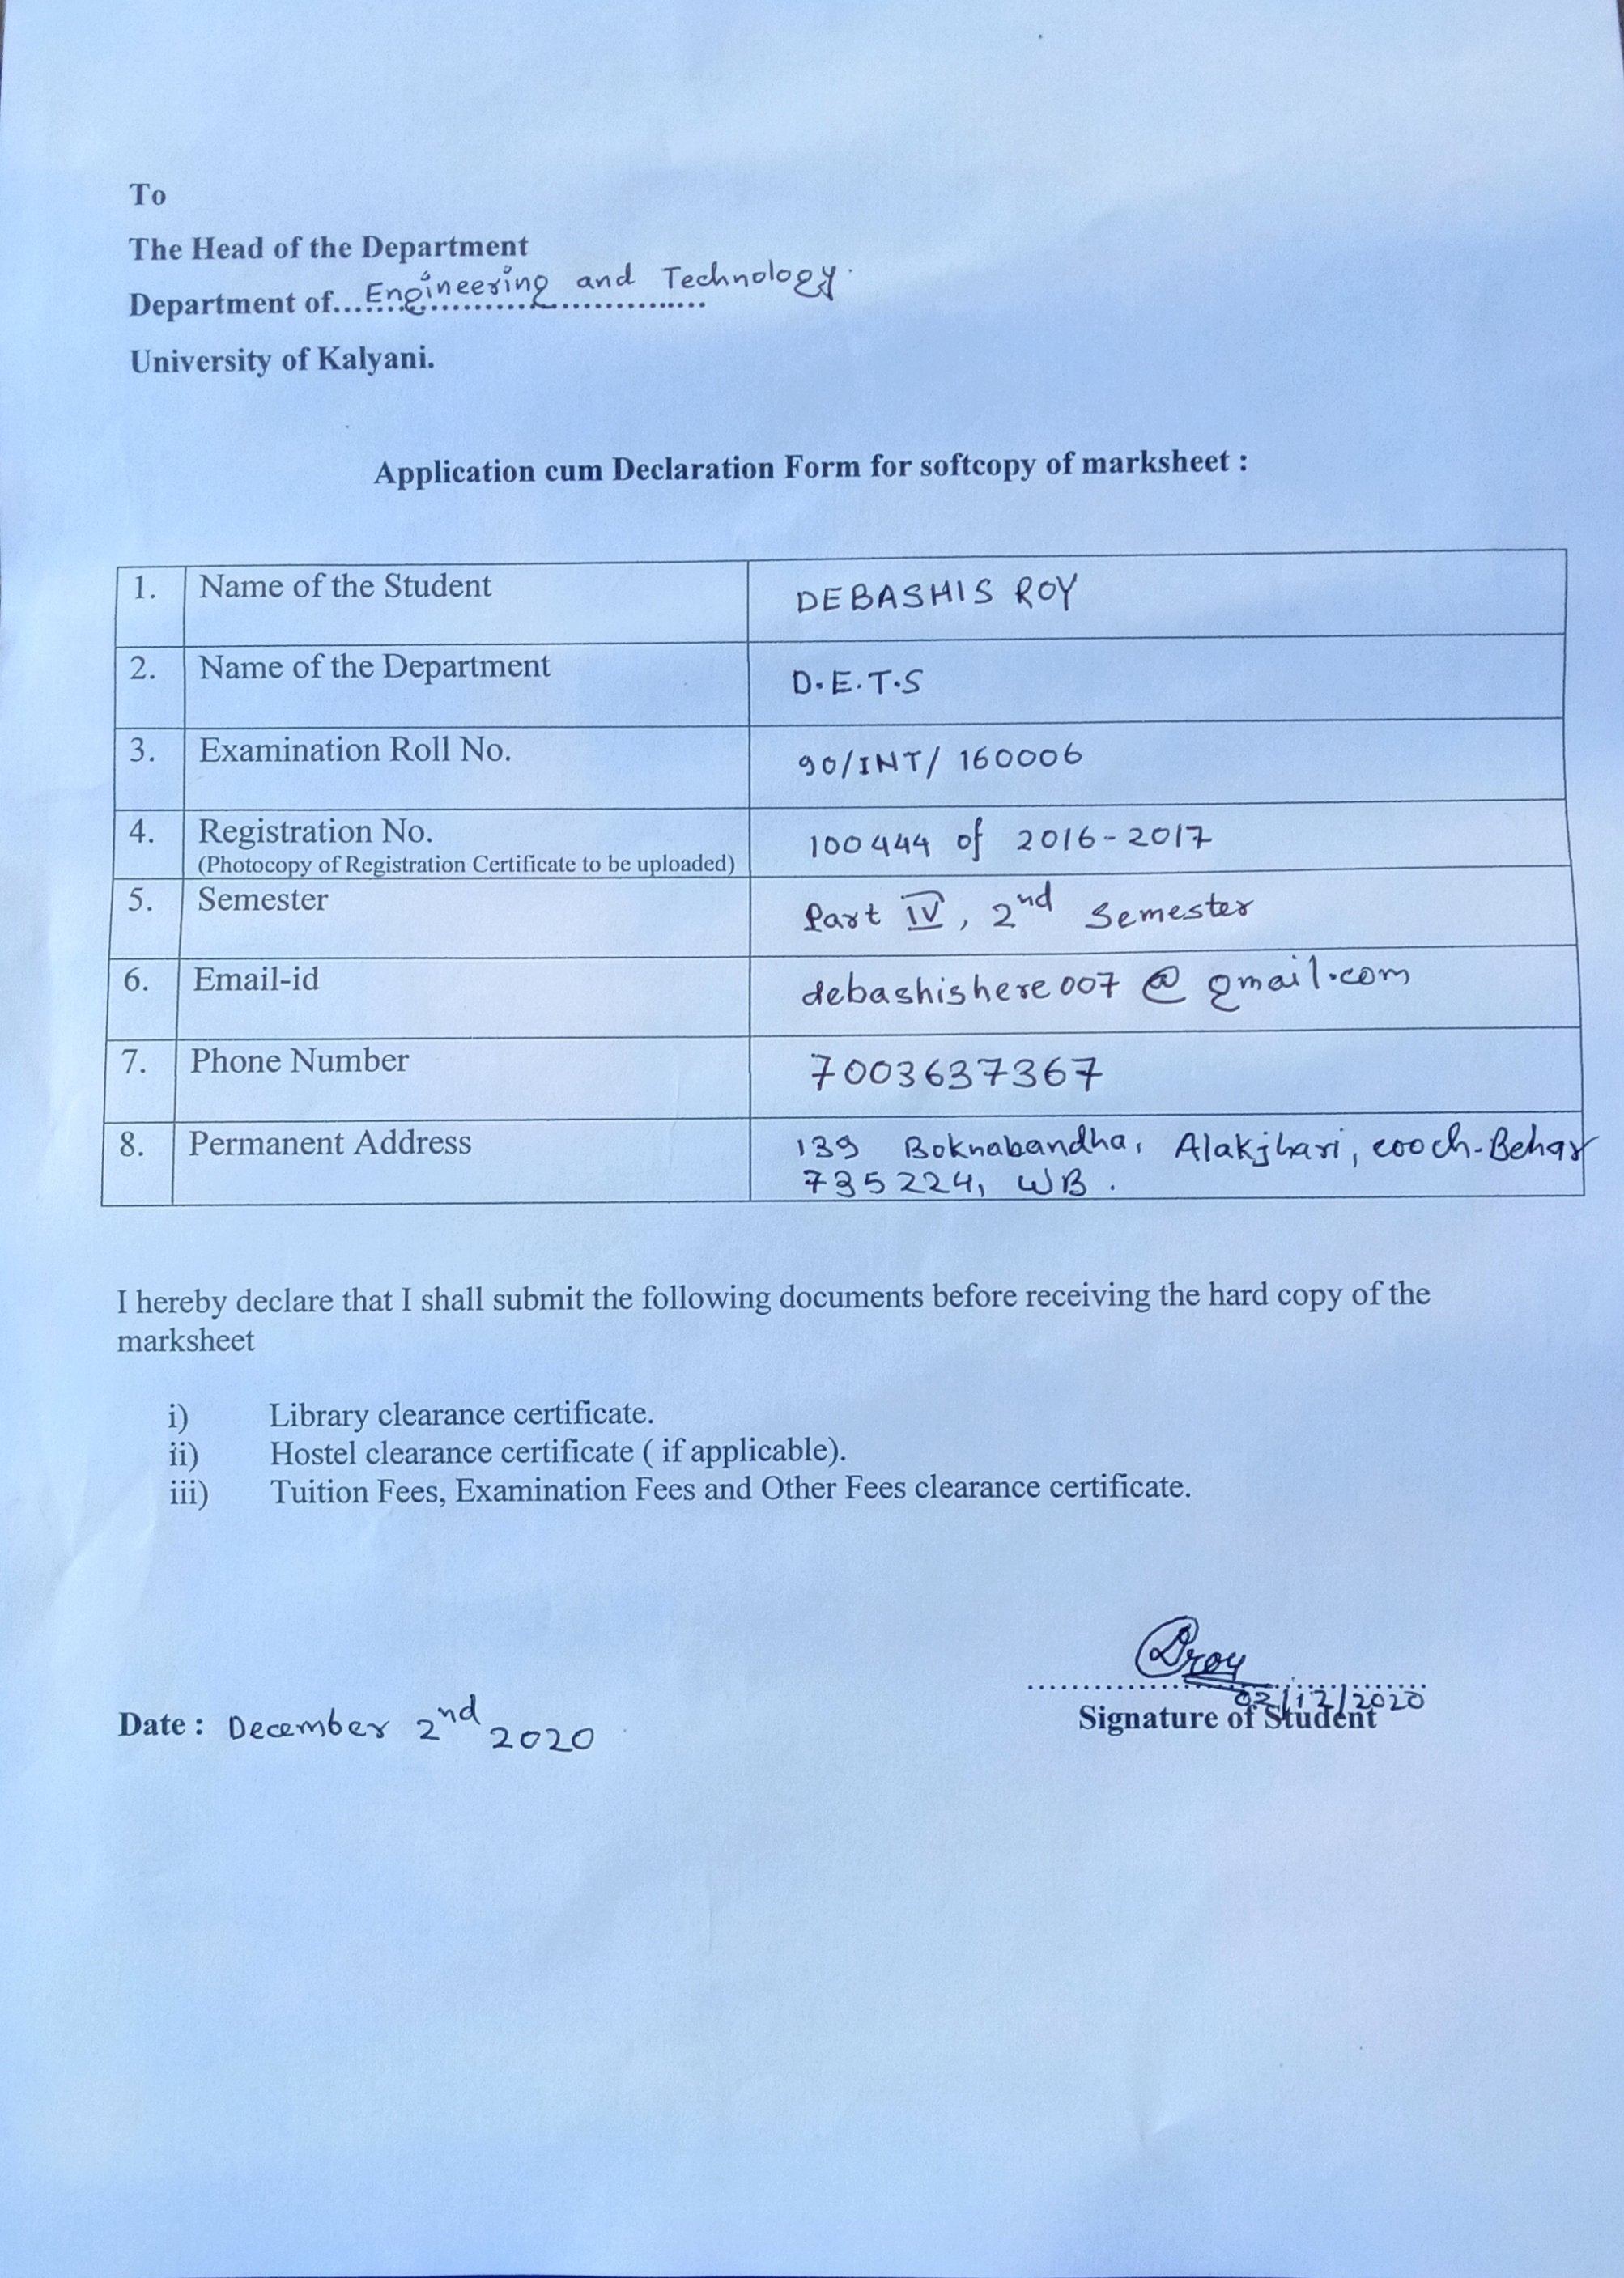 To
The Head of the Department
Department of... Engineering and Technology.
University of Kalyani.
Application cum Declaration Form for softcopy of marksheet :
1. Name of the Student DEBASHIS ROY
2. Name of the Department D.E.T.S
3. Examination Roll No. 90/INT/ 160006
4. Registration No. 100444 of 2016-2017
(Photocopy of Registration Certificate to be uploaded)
5. Semester Part IV, 2nd Semester
6. Email-id debashishere007@gmail.com
7. Phone Number 7003637367
8. Permanent Address 139 Boknabandha, Alakjhari, cooch-Behar
735224, WB.
I hereby declare that I shall submit the following documents before receiving the hard copy of the
marksheet
i) Library clearance certificate.
ii) Hostel clearance certificate ( if applicable).
iii) Tuition Fees, Examination Fees and Other Fees clearance certificate.
Droy
02/12/2020
Signature of Student
Date : December 2nd 2020